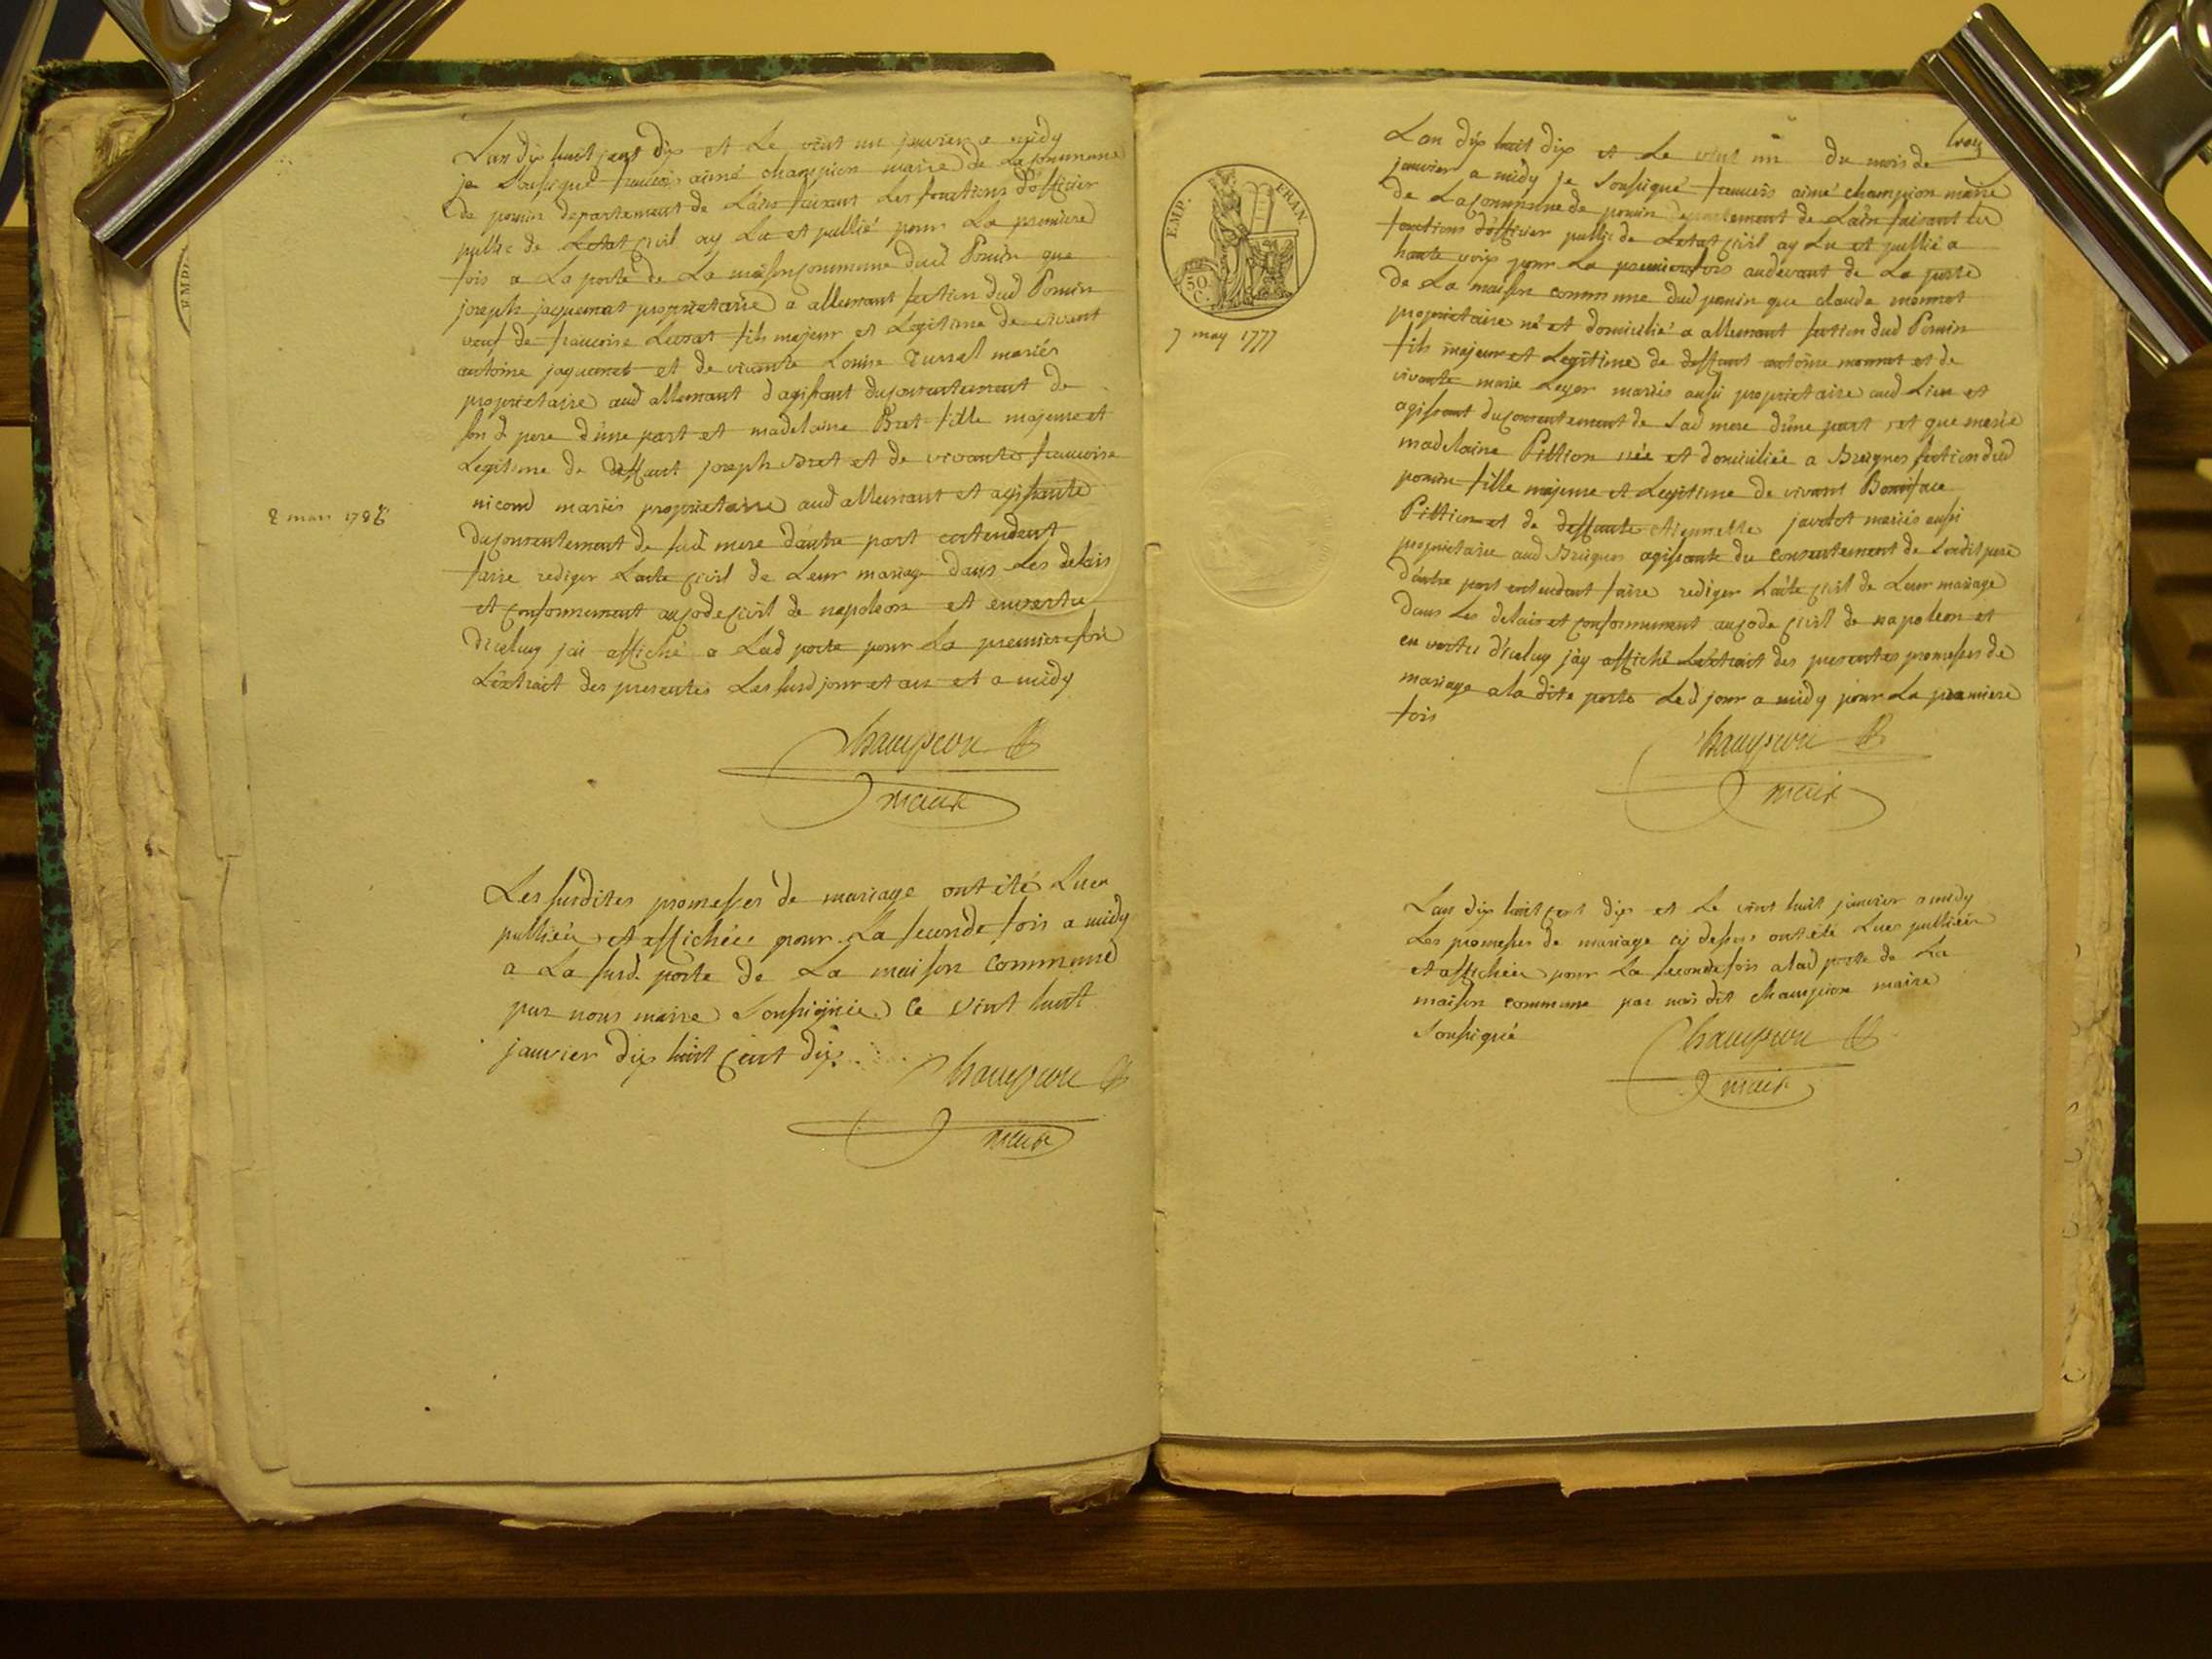 Lan dix huit cent dix et Le vint un janvier a midy
je Soussigné francois aimé champion maire de La commune
de poncin departement de Lain faisant Les fonctions d'officier
public de Letat civil ay Lu et publié pour La premiere
fois a La porte de La maison commune dud Poncin que
joseph jaquemet proprietaire a allemant section dud Poncin
veuf de francoise fils majeur et Legitime de vivant
antoine jaquemet et de vivante Louise mariés
proprietaire aud allemant d agissant du consentement de
son d pere d'une part et madelaine Bret fille majeure et
Legitime de deffunt joseph Bret et de vivante francoise
nicond mariés proprietaire aud allemant et agissante
du consentement de sad mere d'autre part entendent
faire rediger Lacte civil de Leur mariage dans Les delais
et conformement au code civil de napoleon et en vertu
d'iceluy jai affiché a Lad porte pour La premiere fois
L'extrait des presentes Les susd jour et an et a midy
Champion
maire
2 mars 178
Les susdites promesses de mariage ont été Lues
publiées et affichées pour La seconde fois a midy
a La susd. porte de La maison commune
par nous maire Soussignée ce vint huit
janvier dix huit cent dix
Champion
maire
EMP. FRAN.
50.
C.
7 may 1777
trois
Lan dix huit dix et Le vint un du mois de
janvier a midy je Soussigné francois aimé champion maire
de La commune de poncin departement de Lain faisant les
fonctions d'officier public de Letat civil ay Lu et publié a
haute voix pour La premiere fois au devant de La porte
de La maison commune dud poncin que claude monnet
proprietaire né et domicilié a allemant section dud Poncin
fils majeur et Legitime de deffunt antoine monnet et de
vivante marie Leger mariés aussi proprietaire aud Lieu et
agissant du consentement de Sad mere d'une part et que marie
madelaine Pittion née et domiciliée a Breignes section dud
poncin fille majeure et Legitime de vivant Boniface
Pittion et de deffunte etiennette javelot mariés aussi
proprietaire aud Breignes agissante du consentement de Sondit pere
d'autre part entendent faire rediger Lacte civil de Leur mariage
dans Les delais et conformement au code civil de napoleon et
en vertu d'iceluy jay affiché L'extrait des presentes promesses de
mariage a la dite porte Led jour a midy pour La premiere
fois
Champion
maire
Lan dix huit cent dix et Le vint huit janvier a midy
Les promesses de mariage cy dessus ont été Lues publiées
et affichées pour La seconde fois a lad porte de La
maison commune par nous dit champion maire
Soussigné
Champion
maire